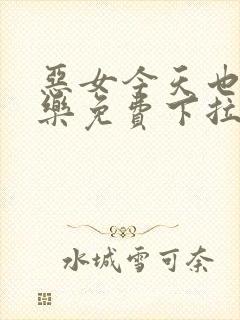 惡女今天也
樂免費下拉
水城雪可奈